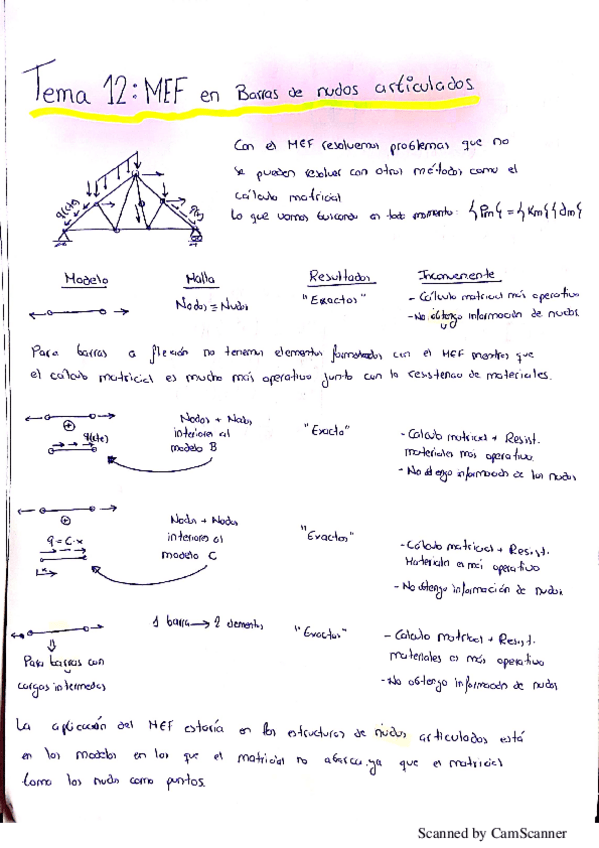 Tema 12: MEF en Barras de nudos articulados
Con el MEF resolvemos problemas que no
se pueden resolver con otros métodos como el
cálculo matricial
lo que vamos buscando en todo momento: {Pm} = {Km}{dm}
q(cte)
q(x)
Modelo Malla Resultados Inconveniente
Nodos = Nudos "Exactos" - Cálculo matricial más operativo
- No obtengo información de nudos.
Para barras a flexión no tenemos elementos formulados con el MEF mientras que
el cálculo matricial es mucho más operativo junto con la resistencia de materiales.
q(cte)
Nodos + Nodos
interiores al
modelo B
"Exacto"
- Calculo matricial + Resist.
materiales más operativo.
- No obtengo información de los nudos
q = C·x
x
Nodos + Nodos
interiores al
modelo C
"Exactos"
- Cálculo matricial + Resist.
Materiales es más operativo
- No obtengo información de nudos
1 barra → 2 elementos "Exactos" - Calculo matricial + Resist.
materiales es más operativo
- No obtengo información de nudos
Para barras con
cargas intermedias
La aplicación del MEF estaría en las estructuras de nudos articulados está
en los modelos en los que el matricial no abarca, ya que el matricial
toma los nudos como puntos.
Scanned by CamScanner